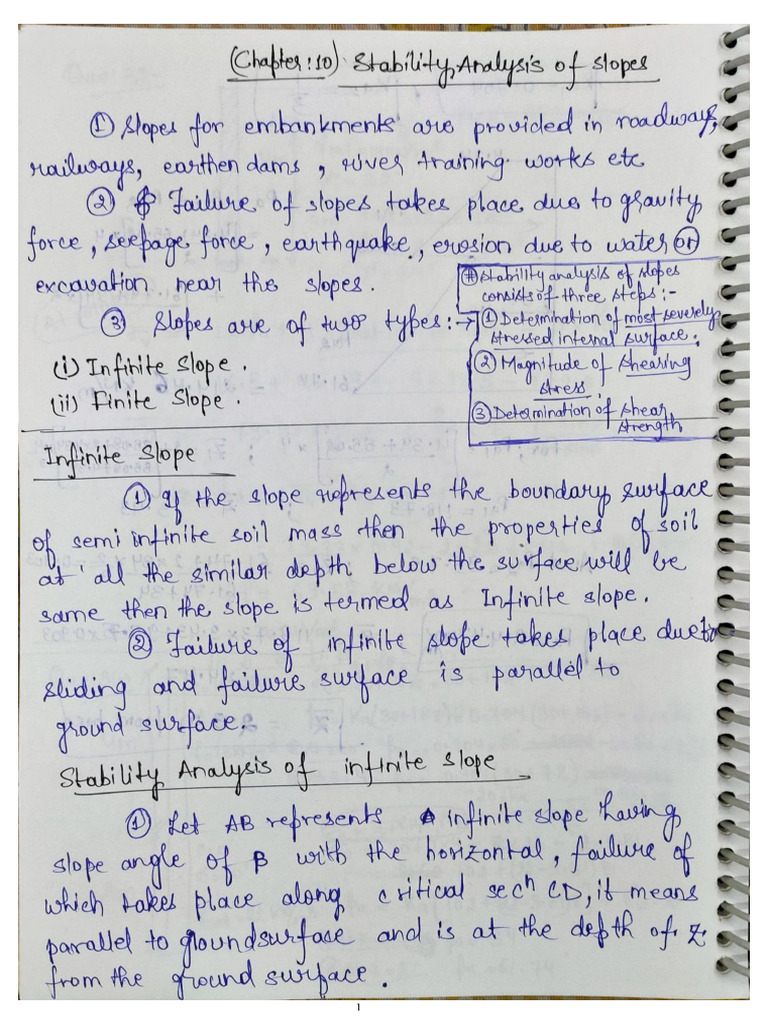 (Chapter:10) Stability Analysis of slopes
① Slopes for embankments are provided in roadways,
railways, earthen dams, river training works etc
② Failure of slopes takes place due to gravity
force, seepage force, earthquake, erosion due to water or
excavation near the slopes.
③ Slopes are of two types:→
(i) Infinite Slope.
(ii) Finite Slope.
# Stability analysis of slopes
consists of three steps:-
① Determination of most severely
stressed internal surface.
② Magnitude of shearing
stress
③ Determination of shear
strength
Infinite Slope
① If the slope represents the boundary surface
of semi infinite soil mass then the properties of soil
at all the similar depth below the surface will be
same then the slope is termed as Infinite slope.
② Failure of infinite slope takes place due to
sliding and failure surface is parallel to
ground surface.
Stability Analysis of infinite slope
① Let AB represents infinite slope having
slope angle of β with the horizontal, failure of
which takes place along critical secⁿ CD, it means
parallel to groundsurface and is at the depth of z
from the ground surface.
1